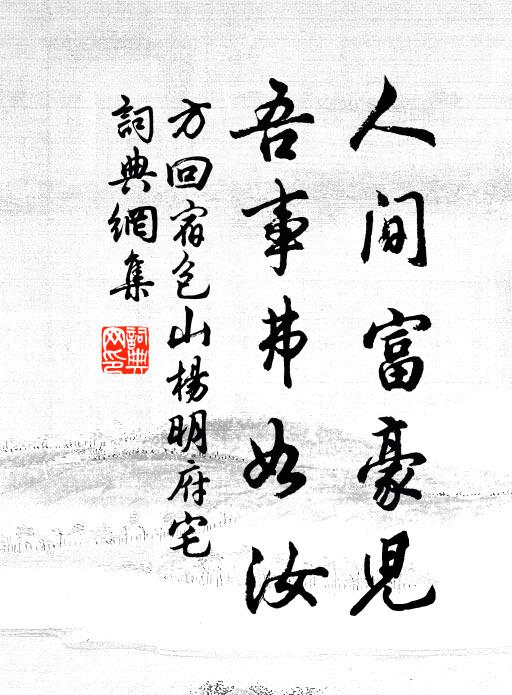 人間富豪児
吾事弗如汝
方回宿包山楊明府宅
詞典網集
詞典
网印